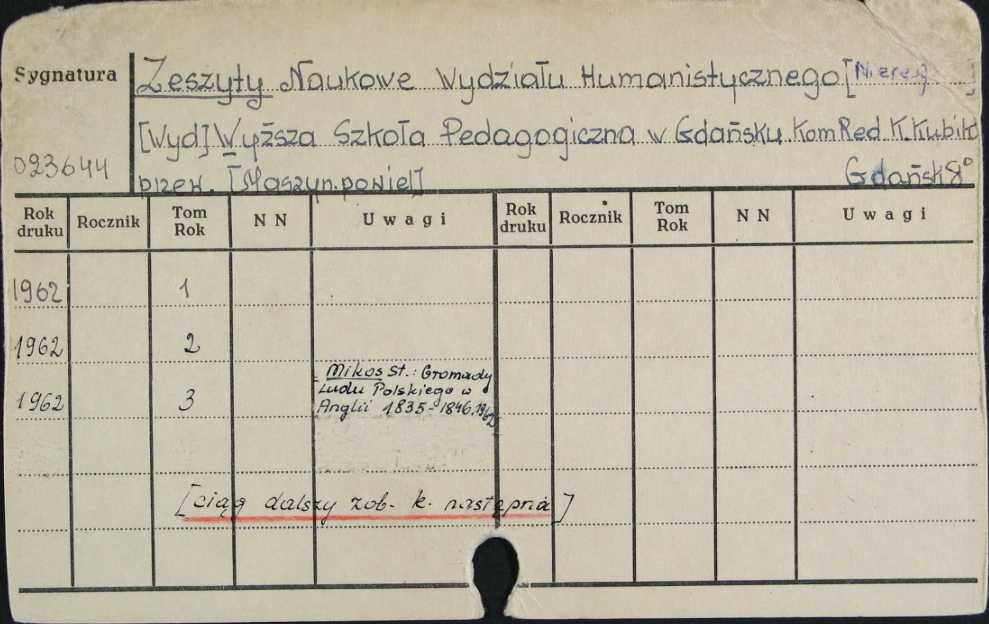 Sygnatura
Zeszyty Naukowe Wydziału Humanistycznego [
[Wyd] Wyższa Szkoła Pedagogiczna w Gdańsku. Kom Red. K. Kubik
023644
przew. [Maszyn. powiel] Gdańsk 8°
Rok druku Rocznik Tom Rok N N Uwagi Rok druku Rocznik Tom Rok N N Uwagi
1962 1
1962 2
1962 3 = Mikos St.: Gromady
Ludu Polskiego w
Anglii 1835-1846. 1962
[ciąg dalszy zob. k. następna]